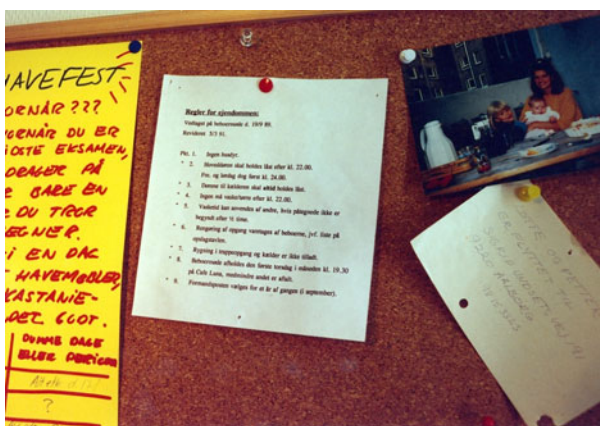 HAVEFEST
ORNÅR ???
ORNÅR DU ER
IDSTE EKSAMEN,
DRAGER PÅ
BARE EN
DU TROR
EGNER.
I EN DAG
HAVEMØBLER,
KASTANIE-
DET GODT.
DUMME DAGE
ELLER PERIODER
?
Regler for ejendommen:
Vedtaget på beboermøde d. 19/9 89.
Revideret 5/3 91.
Pkt. 1. Ingen husdyr.
" 2. Hoveddøren skal holdes låst efter kl. 22.00.
Fre. og lørdag dog først kl. 24.00.
" 3. Dørene til kælderen skal altid holdes låst.
" 4. Ingen må vaske/tørre efter kl. 22.00.
" 5. Vasketid kan anvendes af andre, hvis pågående ikke er
begyndt efter ½ time.
" 6. Rengøring af opgang varetages af beboerne, jvf. liste på
opslagstavlen.
" 7. Rygning i trappeopgang og kælder er ikke tilladt.
" 8. Beboermøde afholdes den første torsdag i måneden kl. 19.30
på Cafe Luna, medmindre andet er aftalt.
" 9. Formandsposten vælges for et år af gangen (i september).
PETTER